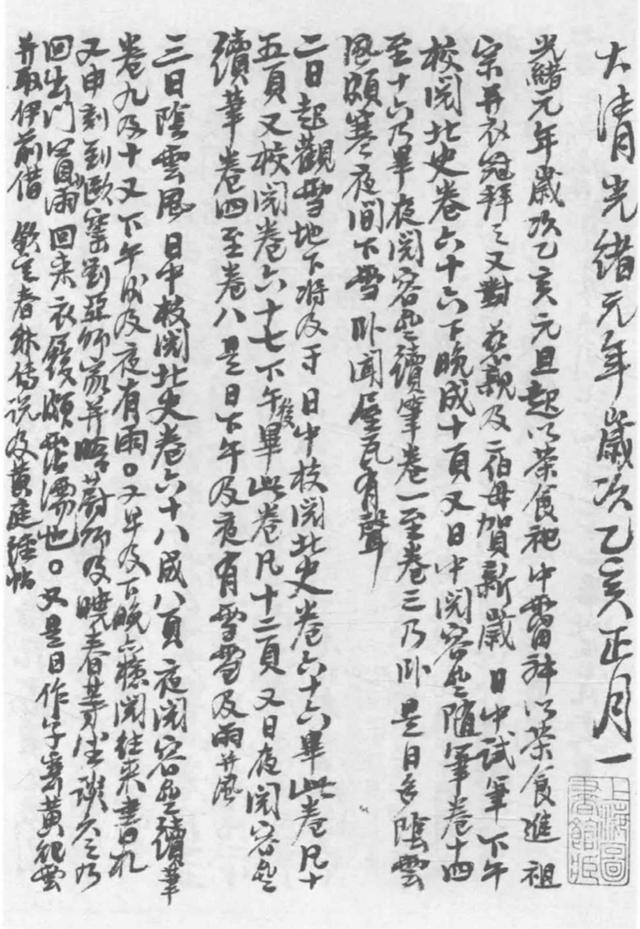 大清光緒元年歲次乙亥正月一
光緒元年歲次乙亥元旦起以茶食祀中霤神以茶食進 祖
宗并衣冠拜之又對 慈親及二伯母賀新歲 日中試筆下午
校閱北史卷六十六下晚成十頁又日中閱容齋隨筆卷十四
至十六乃畢夜閱容齋續筆卷一至卷三乃卧是日多陰雲
風頗寒夜間下雪卧聞屋瓦有聲
二日起觀雪地下將及寸 日中校閱北史卷六十六畢此卷凡十
五頁又校閱卷六十七下午後畢此卷凡十二頁又日夜閱容齋
續筆卷四至卷八是日下午及夜有雪雹及雨并風
三日陰雲風 日中校閱北史卷六十八成八頁夜閱容齋續筆
卷九及十又下午及夜有雨又早及下晚閱往來書札
又申刻到劉亞師家并晤蔚師及曉春等坐談久之乃
回出門冒雨回來衣履頗霑濡也又是日作字寄黃
并取伊前借 欽定春秋傳說及黃庭經帖
上海圖書館臧